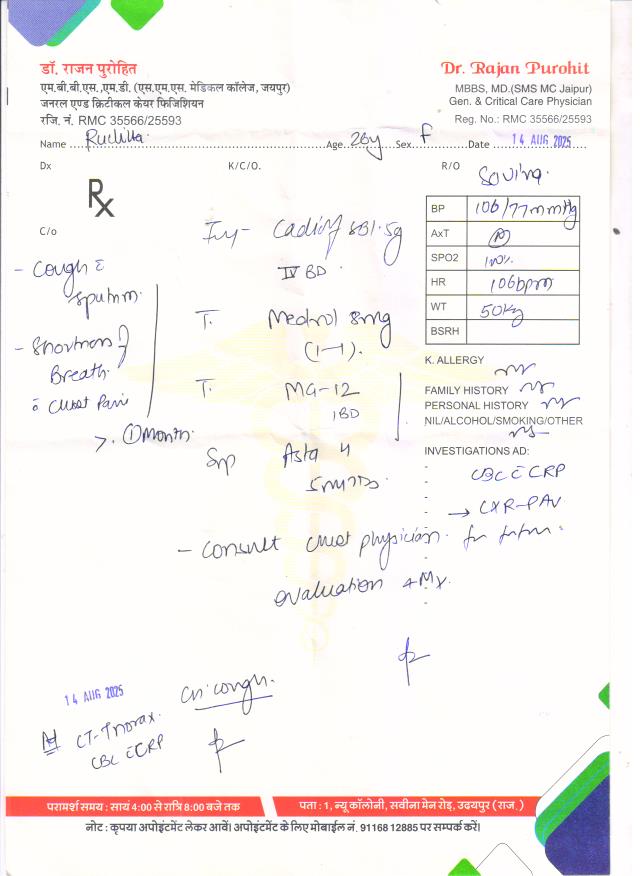 डॉ. राजन पुरोहित
एम.बी.बी.एस.,एम.डी. (एस.एम.एस. मेडिकल कॉलेज, जयपुर)
जनरल एण्ड क्रिटीकल केयर फिजिशियन
रजि. नं. RMC 35566/25593
Dr. Rajan Purohit
MBBS, MD.(SMS MC Jaipur)
Gen. & Critical Care Physician
Reg. No.: RMC 35566/25593
Name Ruchita Age 28y Sex F Date 14 AUG 2025
Dx K/C/O. R/O
Savina
Rx
C/o
- Cough c̄
Sputum
- Shortness of
Breath
c̄ Chest Pain
> 1 Month
Inj- 1.5g
IV BD
T. Medrol 8mg
(1-1)
T. MG-12
1BD
Syp
- Consult chest physician for
evaluation + Mx.
BP 106/77mmHg
AxT
SPO2 100%
HR 106bpm
WT 50kg
BSRH
K. ALLERGY
FAMILY HISTORY
PERSONAL HISTORY
NIL/ALCOHOL/SMOKING/OTHER
INVESTIGATIONS AD:
CBC c̄ CRP
→ CXR-PAV
14 AUG 2025
CT-Thorax
CBC c̄ CRP
परामर्श समय : सायं 4:00 से रात्रि 8:00 बजे तक
पता : 1, न्यू कॉलोनी, सवीना मेन रोड़, उदयपुर (राज.)
नोट : कृपया अपोइंटमेंट लेकर आवें। अपोइंटमेंट के लिए मोबाईल नं. 91168 12885 पर सम्पर्क करें।